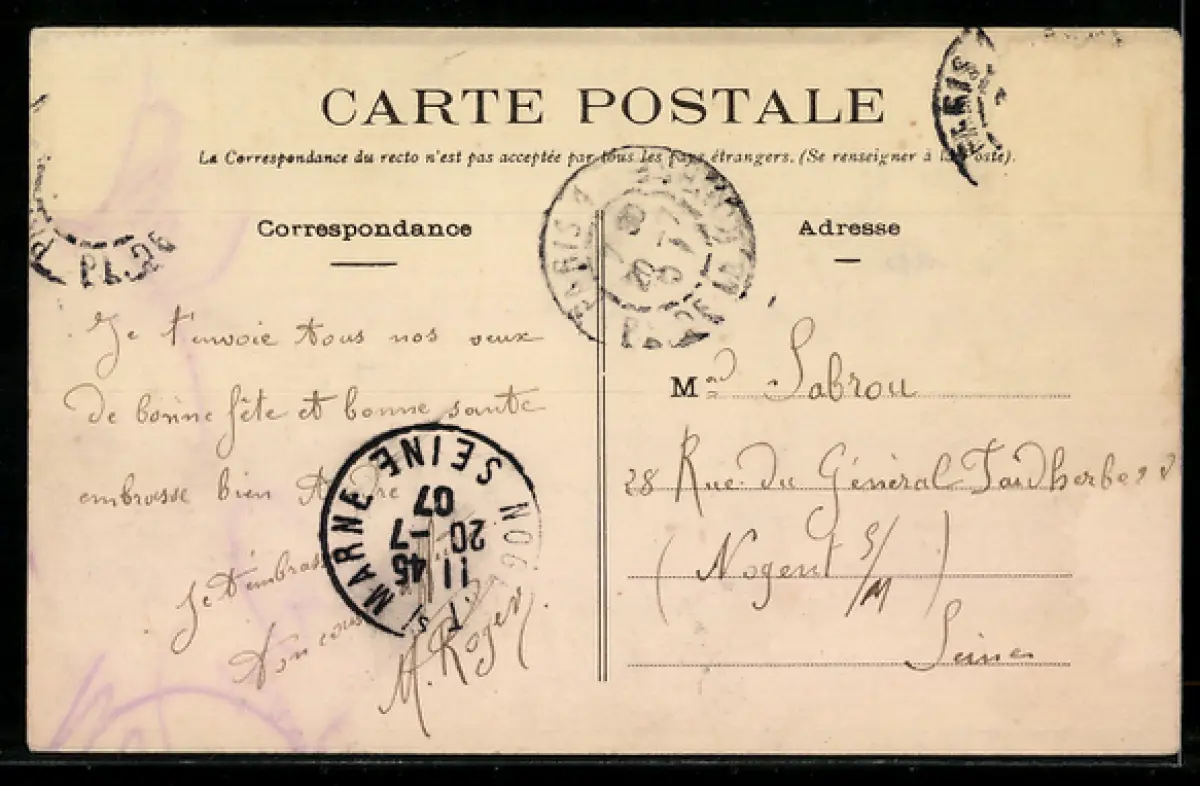 CARTE POSTALE
La Correspondance du recto n'est pas acceptée par tous les pays étrangers. (Se renseigner à la Poste).
Correspondance
Adresse
Je t'envoie tous nos veux
de bonne fête et bonne santé
embrasse bien André
Je t'embrasse
Ton cous
M. Roger
Mad Sabrou
28 Rue du Général Faidherbe 28
(Nogent s/M)
Seine
PARIS
PARIS
PL. DE
NOGENT S. MARNE SEINE
11 45
20 -7
07